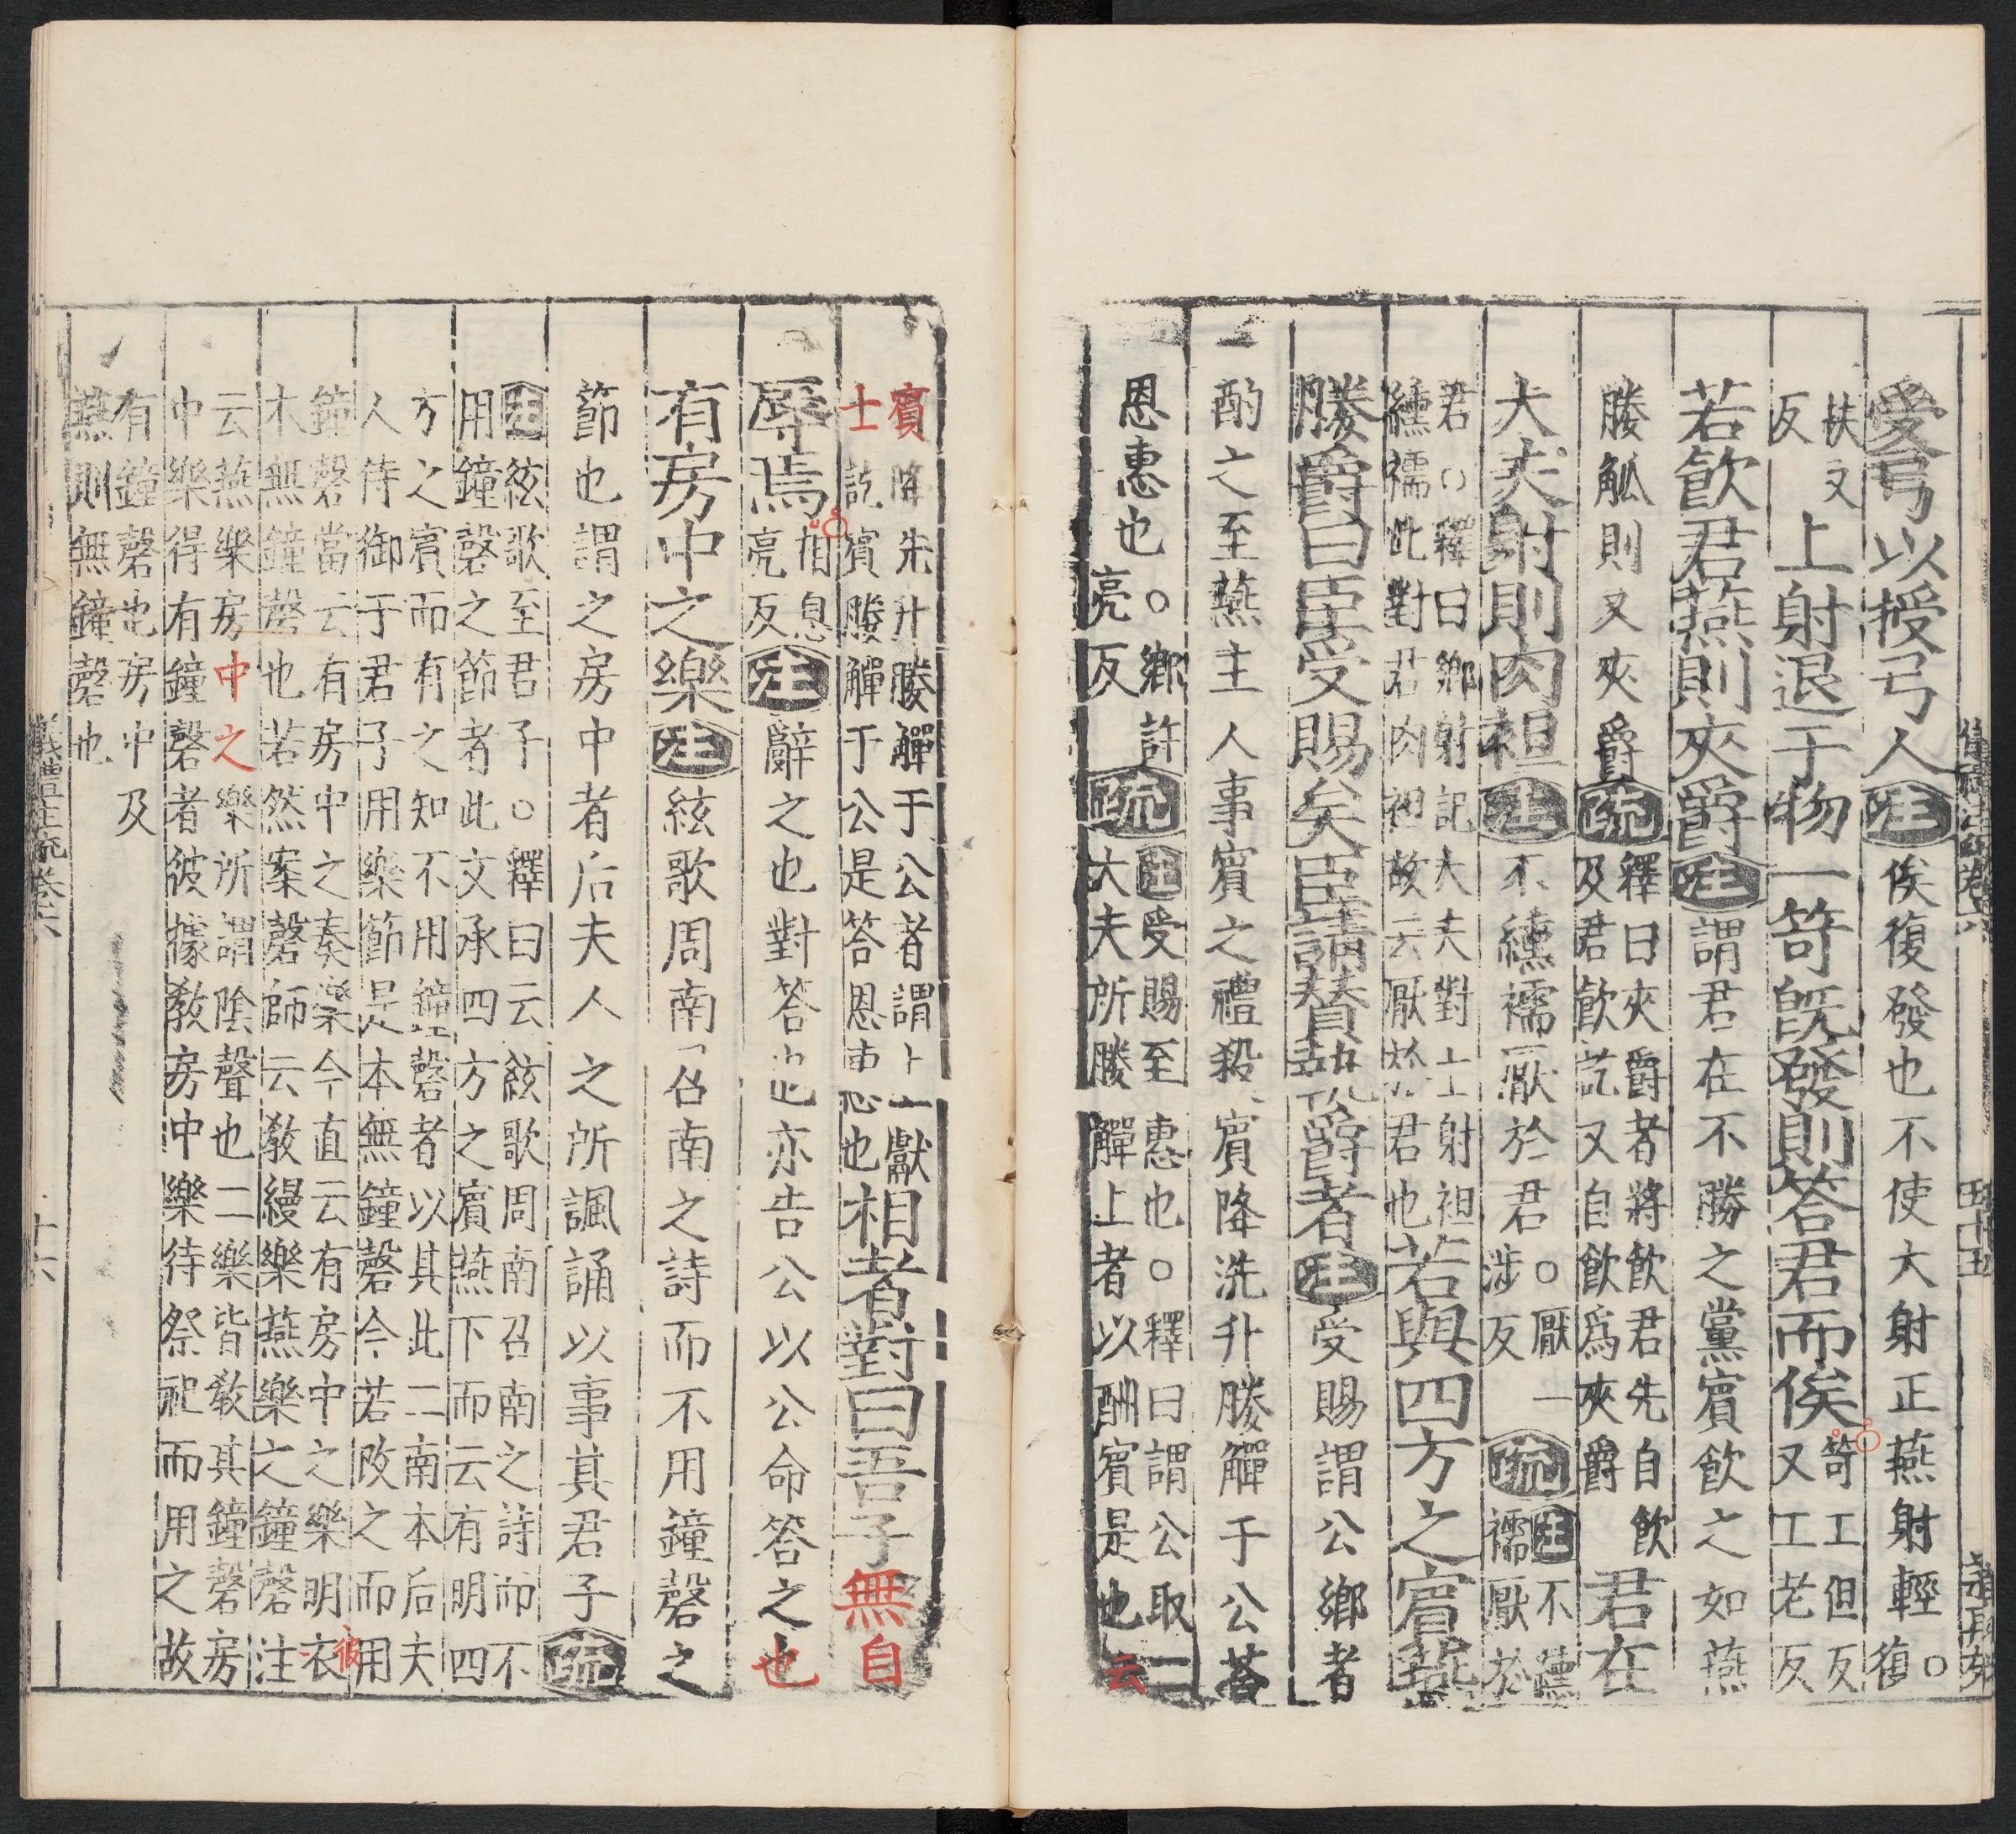 受弓以授弓人注俟復發也不使大射正燕射輕○復
扶又
反上射退于物一笴既發則答君而俟笴工但反
又工老反
若飲君燕則夾爵注謂君在不勝之黨賓飲之如燕
媵觚則又夾爵疏釋曰夾爵者將飲君先自飲
及君飲訖又自飲爲夾爵君在
大夫射則肉袒注不纁襦厭於君○厭一
涉反疏注不纁
襦厭於
君○釋曰鄉射記大夫對士射袒
纁襦此對君肉袒故云厭於君也若與四方之賓燕
媵爵曰臣受賜矣臣請贊執爵者注受賜謂公鄉者
酌之至燕主人事賓之禮殺賓降洗升媵觶于公荅
恩惠也○鄉許
亮反疏注受賜至惠也○釋曰謂公取二
大夫所媵觶上者以酬賓是也云
賓降先升媵觶于公者謂士一獻
士訖賓媵觶于公是答恩惠也相者對曰吾子無自
辱焉相息
亮反注辭之也對答也亦告公以公命答之也
有房中之樂注絃歌周南召南之詩而不用鐘磬之
節也謂之房中者后夫人之所諷誦以事其君子疏
注絃歌至君子○釋曰云絃歌周南召南之詩而不
用鐘磬之節者此文承四方之賓燕下而云有明四
方之賓而有之知不用鐘磬者以其此二南本后夫
人侍御于君子用樂節是本無鐘磬今若改之而用
鐘磬當云有房中之奏樂今直云有房中之樂明衣彼
木無鐘磬也若然案磬師云教縵樂燕樂之鐘磬注
云燕樂房中之樂所謂陰聲也二樂皆教其鐘磬房
中樂得有鐘磬者彼據教房中樂待祭祀而用之故
有鐘磬也房中及
燕則無鐘磬也
儀禮注疏卷六
十六